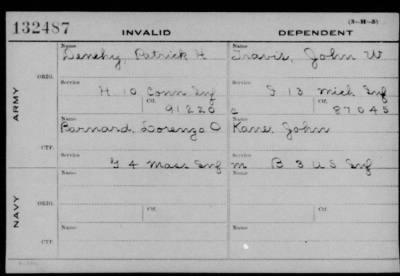 132487
(3-H-5)
INVALID DEPENDENT
Name Name
Denehy, Patrick H Travis, John W
ARMY
ORIG.
Service Service
H 10 Conn Inf I 13 Mich Inf
Ctf. Ctf.
91220 c 87045
Name Name
Barnard, Lorenzo O Kane, John
CTF.
Service Service
G 4 Mass Inf m B 3 U S Inf
Name Name
NAVY
ORIG.
Ctf. Ctf.
Name Name
CTF.